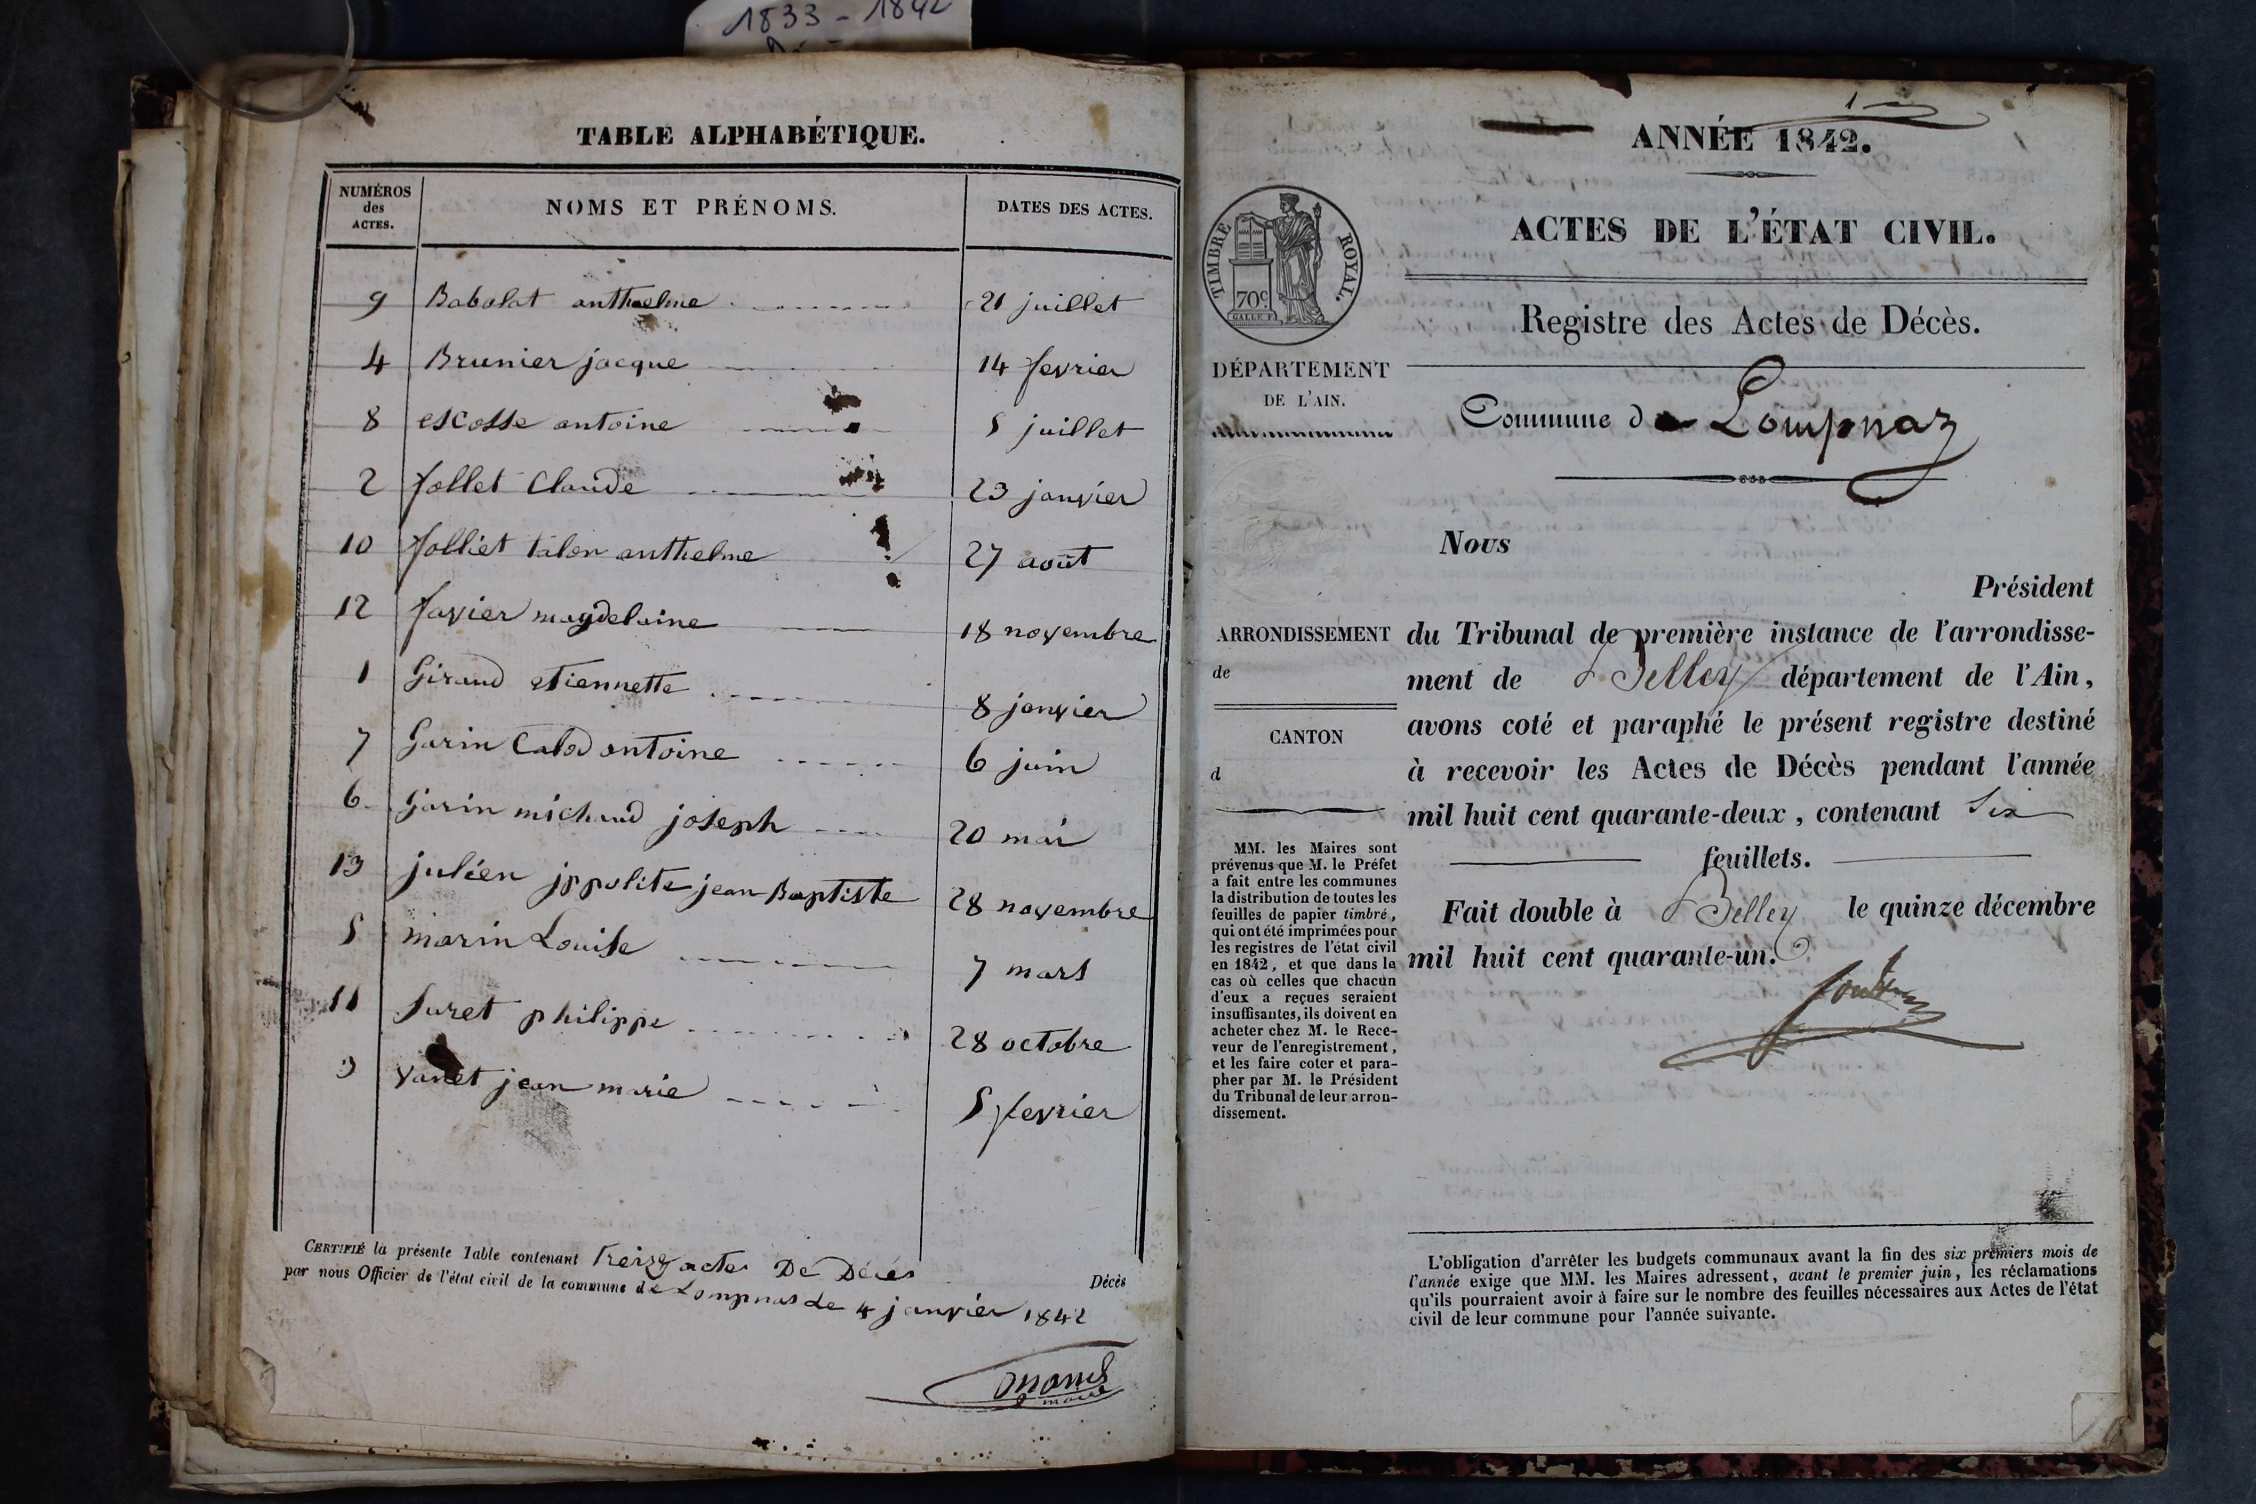 1833 - 1842
TABLE ALPHABÉTIQUE.
NUMÉROS des ACTES. NOMS ET PRÉNOMS. DATES DES ACTES.
9 Babolat anthelme 21 juillet
4 Brunier jacque 14 fevrier
8 escosse antoine 5 juillet
2 follet Claude 23 janvier
10 folliet talon anthelme 27 août
12 favier magdelaine 18 novembre
1 Giraud etiennette 8 janvier
7 Garin antoine 6 juin
6 Garin michaud joseph 20 mai
13 julien jppolite jean Baptiste 28 novembre
5 marin Louise 7 mars
11 Suret philippe 28 octobre
3 vanet jean marie 5 fevrier
CERTIFIÉ la présente Table contenant treize actes De Décès Décès
par nous Officier de l'état civil de la commune de Lompnas Le 4 janvier 1842
maire
1
ANNÉE 1842.
ACTES DE L'ÉTAT CIVIL.
Registre des Actes de Décès.
TIMBRE ROYAL.
70c
GALLE F.
DÉPARTEMENT
DE L'AIN.
Commune de Lompnaz
Nous
Président
ARRONDISSEMENT
de
CANTON
d
du Tribunal de première instance de l'arrondisse-
ment de Belley département de l'Ain,
avons coté et paraphé le présent registre destiné
à recevoir les Actes de Décès pendant l'année
mil huit cent quarante-deux, contenant Six
feuillets.
Fait double à Belley le quinze décembre
mil huit cent quarante-un.
MM. les Maires sont
prévenus que M. le Préfet
a fait entre les communes
la distribution de toutes les
feuilles de papier timbré,
qui ont été imprimées pour
les registres de l'état civil
en 1842, et que dans le
cas où celles que chacun
d'eux a reçues seraient
insuffisantes, ils doivent en
acheter chez M. le Rece-
veur de l'enregistrement,
et les faire coter et para-
pher par M. le Président
du Tribunal de leur arron-
dissement.
L'obligation d'arrêter les budgets communaux avant la fin des six premiers mois de
l'année exige que MM. les Maires adressent, avant le premier juin, les réclamations
qu'ils pourraient avoir à faire sur le nombre des feuilles nécessaires aux Actes de l'état
civil de leur commune pour l'année suivante.